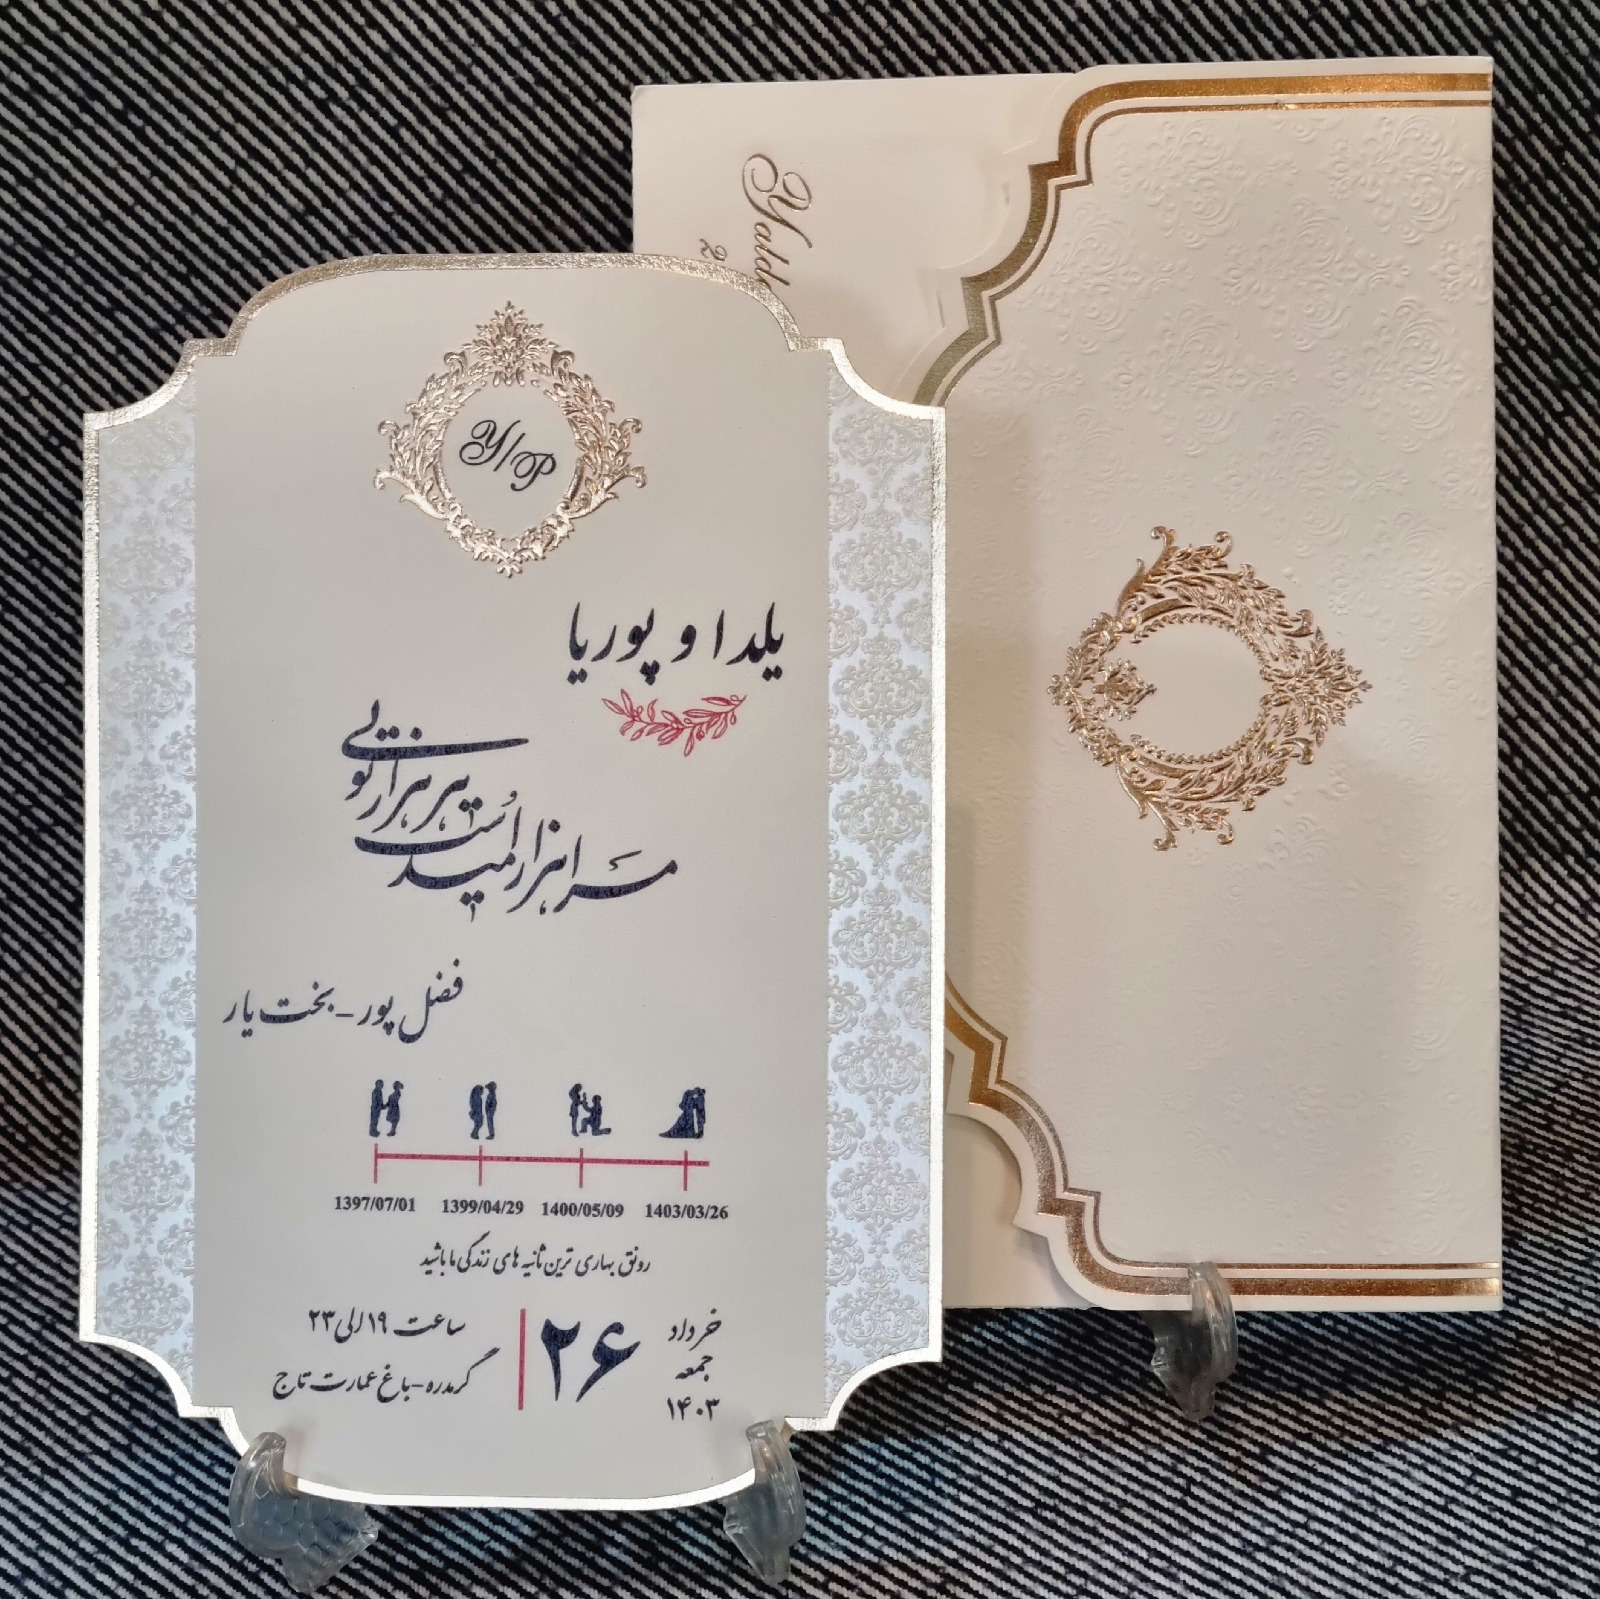 Yald
2
Y/P
یلدا و پوریا
مرا هزار امید است
و هر هزار تویی
فضل پور - بخت یار
1397/07/01 1399/04/29 1400/05/09 1403/03/26
رونق بهاری ترین ثانیه های زندگی ما باشید
خرداد
جمعه
۱۴۰۳
۲۶
ساعت ۱۹ الی ۲۳
گرمدره - باغ عمارت تاج